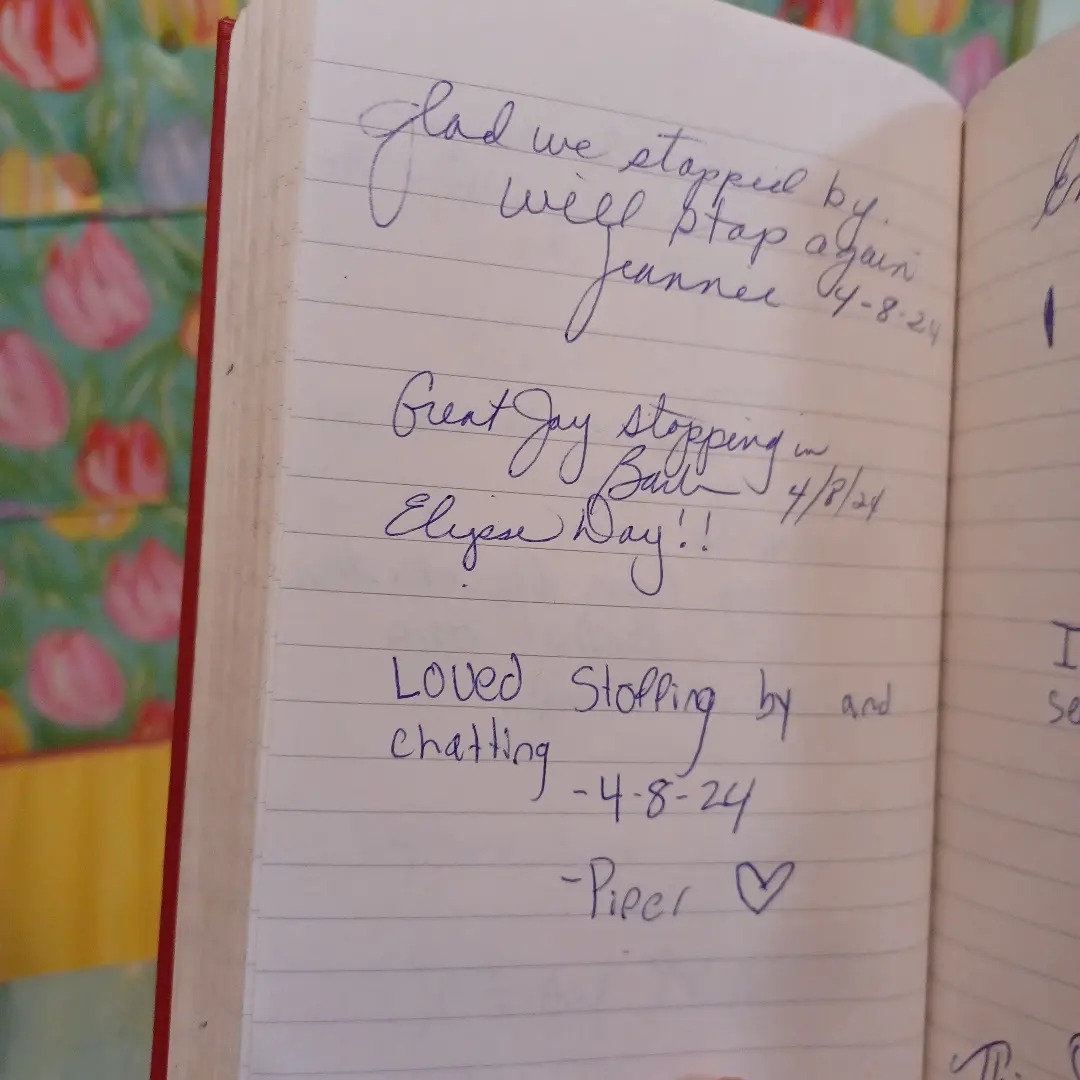 glad we stopped by.
will stop again
Jeannee 4-8-24
Great Joy stopping in
Barb 4/8/24
Elypse Day!!
Loved Stopping by and
chatting
-4-8-24
-Piper ♡
I
se